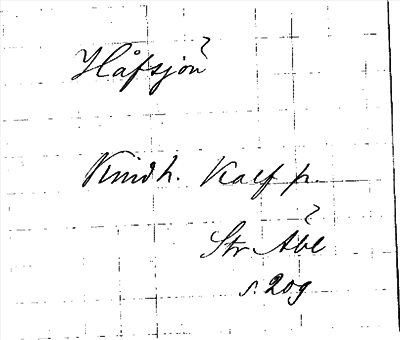 Håfsjön?
Kindh. Kalf p.
Str Åbl?
s. 209